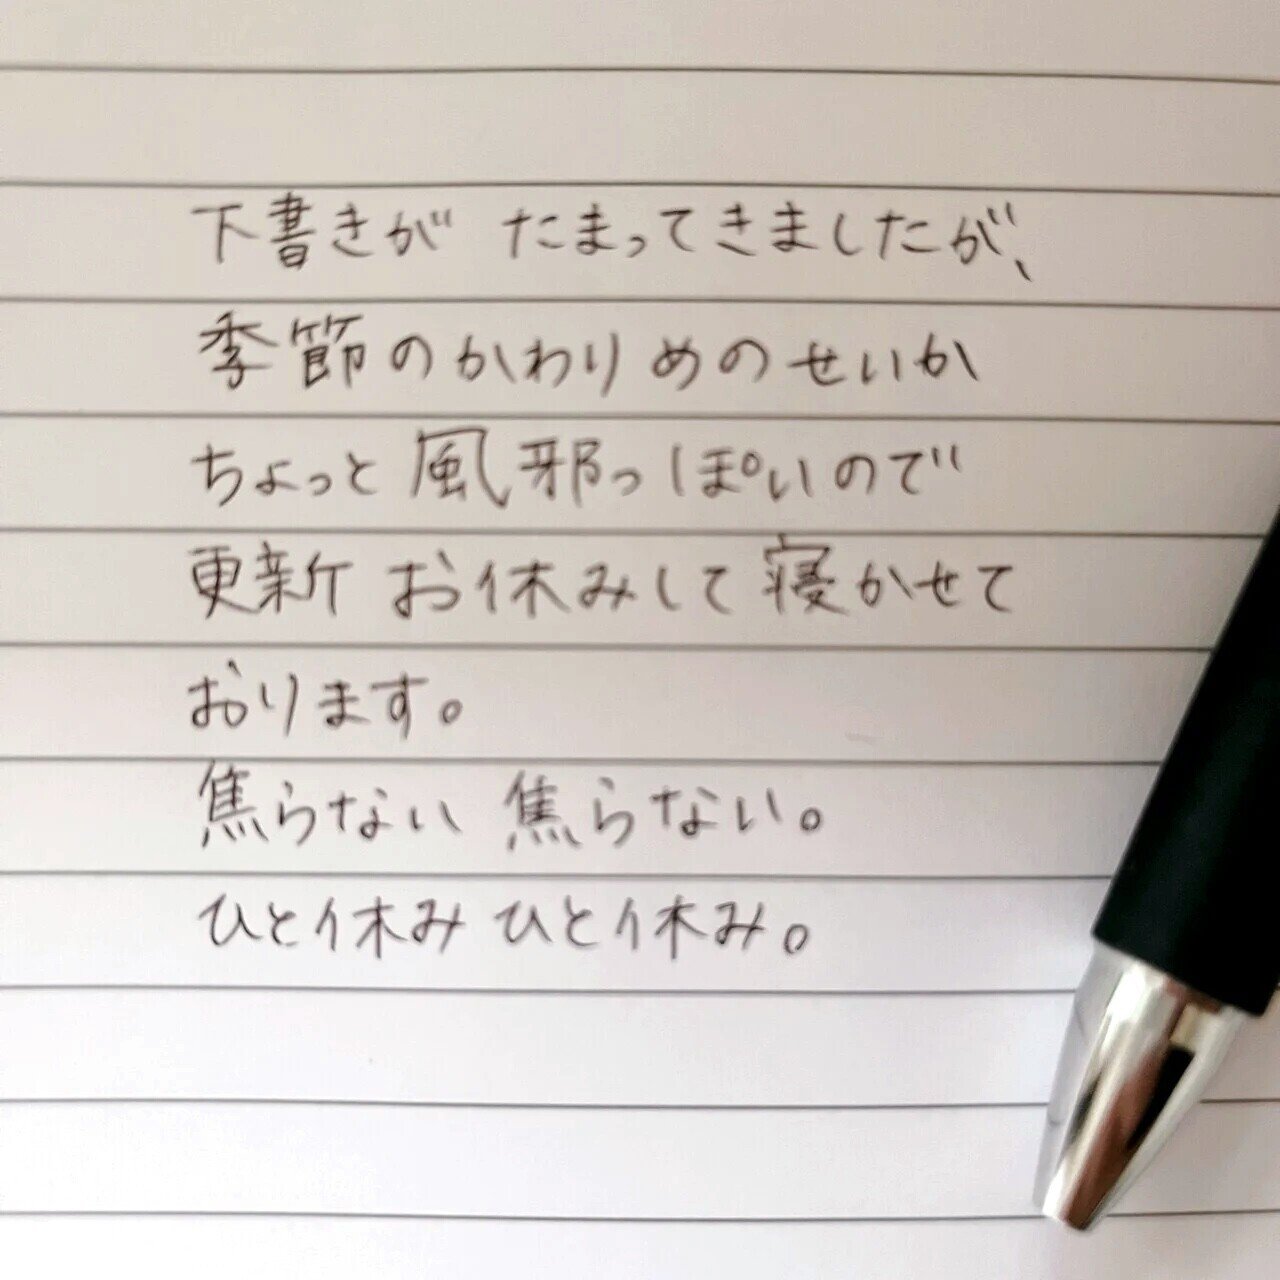 下書きが たまってきましたが、
季節のかわりめのせいか
ちょっと風邪っぽいので
更新お休みして寝かせて
おります。
焦らない 焦らない。
ひと休み ひと休み。